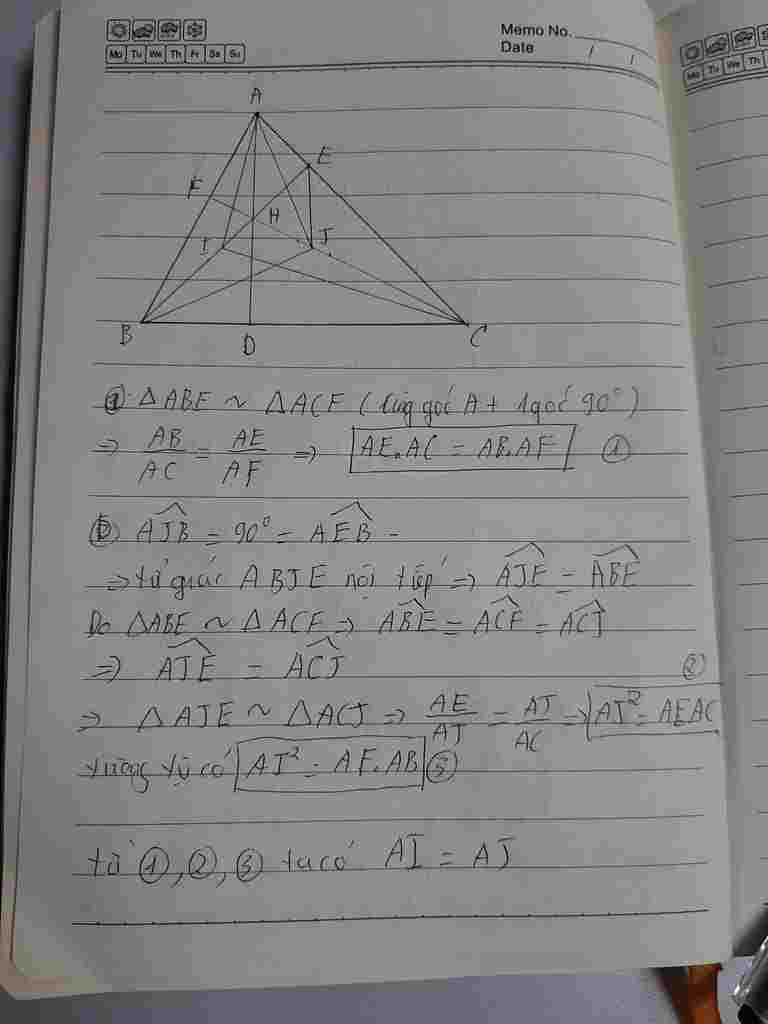 Memo No.
Mo Tu We Th Fr Sa Su
Date / /
Mo Tu We Th
A
E
F
H
I J
B D C
ⓐ △ABE ~ △ACF (cùng góc A + 1 góc 90°)
⇒ AB/AC = AE/AF ⇒ AE.AC = AB.AF ①
ⓑ AJB = 90° = AEB
⇒ tứ giác ABJE nội tiếp ⇒ AJE = ABE
Do △ABE ~ △ACF ⇒ ABE = ACF = ACJ
⇒ AJE = ACJ
⇒ △AJE ~ △ACJ ⇒ AE/AJ = AJ/AC ⇒ AJ² = AE.AC ②
tương tự có AI² = AF.AB ③
từ ①, ②, ③ ta có AI = AJ